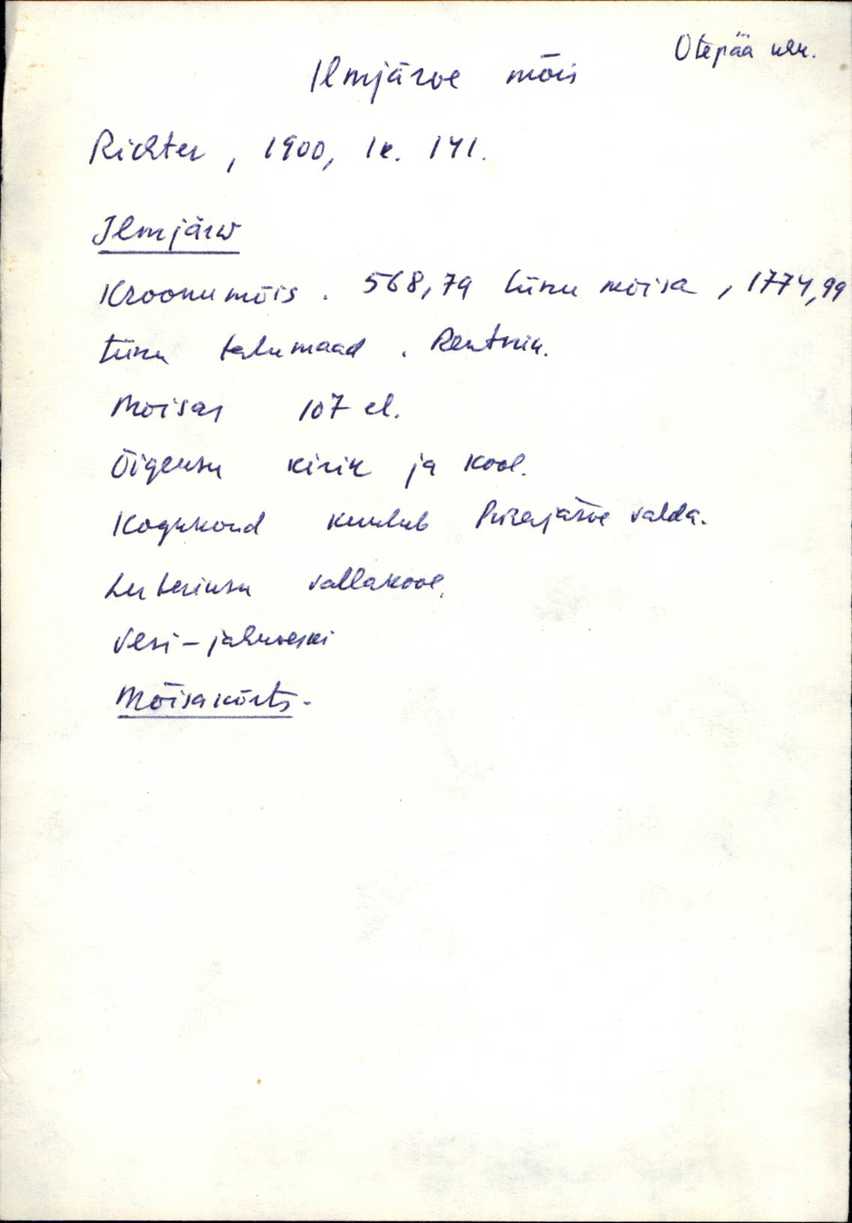 Otepää khk.
Ilmjärve mõis
Richter, 1900, lk. 141.
Ilmjärw
Kroonumõis. 568,79 tiinu mõisa, 1774,99
tiinu talumaad. Rentnik.
Mõisas 107 el.
Õigeusu kirik ja kool.
Kogukond kuulub Pühajärve valda.
Luteriusu vallakool.
Vesi-jahuveski
Mõisakõrts.